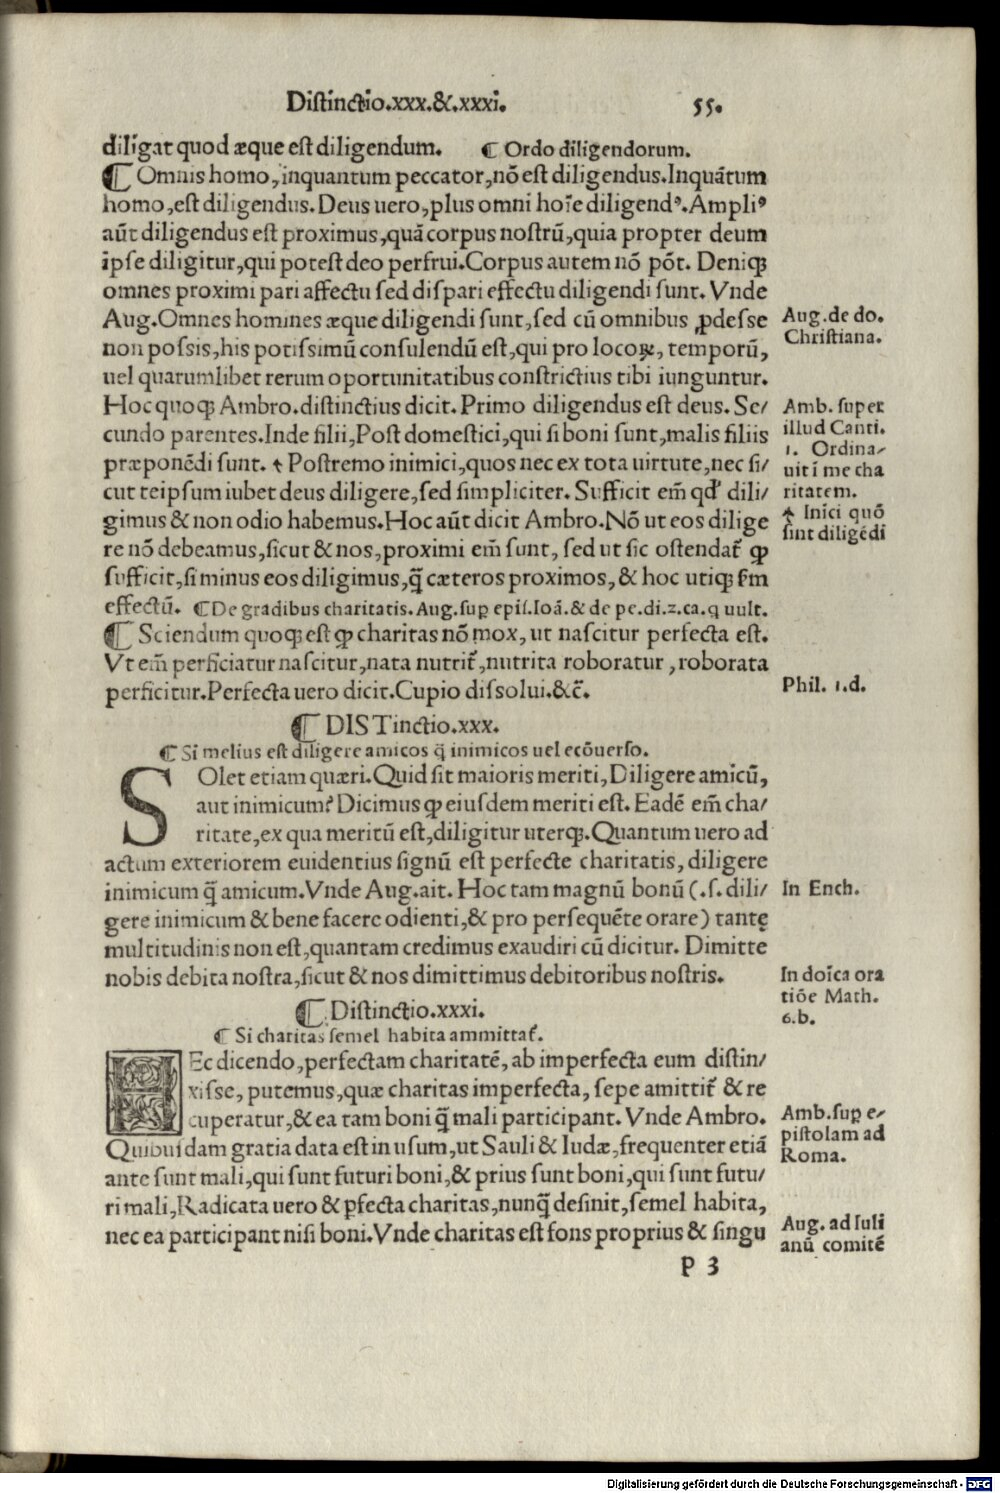 Distinctio.xxx.&.xxxi. 55.
diligat quod æque est diligendum. ¶ Ordo diligendorum.
¶ Omnis homo, inquantum peccator, nõ est diligendus. Inquãtum
homo, est diligendus. Deus uero, plus omni hoĩe diligendꝰ. Ampliꝰ
aũt diligendus est proximus, quã corpus nostrũ, quia propter deum
ipse diligitur, qui potest deo perfrui. Corpus autem nõ põt. Deniqꝫ
omnes proximi pari affectu sed dispari effectu diligendi sunt. Vnde
Aug. Omnes homines æque diligendi sunt, sed cũ omnibus ꝓdesse
non possis, his potissimũ consulendũ est, qui pro locoꝝ, temporũ,
uel quarumlibet rerum oportunitatibus constrictius tibi iunguntur.
Hoc quoqꝫ Ambro. distinctius dicit. Primo diligendus est deus. Se/
cundo parentes. Inde filii, Post domestici, qui si boni sunt, malis filiis
præponẽdi sunt. ↟ Postremo inimici, quos nec ex tota uirtute, nec si/
cut teipsum iubet deus diligere, sed simpliciter. Sufficit em̃ qđ dili/
gimus & non odio habemus. Hoc aũt dicit Ambro. Nõ ut eos dilige
re nõ debeamus, sicut & nos, proximi em̃ sunt, sed ut sic ostendat̃ ꝙ
sufficit, si minus eos diligimus, q̃ cæteros proximos, & hoc utiqꝫ fm
effectũ. ¶ De gradibus charitatis. Aug. suꝑ epis. Ioã. & de pe. di. 2. ca. q uult.
¶ Sciendum quoqꝫ est ꝙ charitas nõ mox, ut nascitur perfecta est.
Vt em̃ perficiatur nascitur, nata nutrit̃, nutrita roboratur, roborata
perficitur. Perfecta uero dicit. Cupio dissolui. &c̃.
¶ DISTinctio.xxx.
¶ Si melius est diligere amicos q̃ inimicos uel ecõuerso.
SOlet etiam quæri. Quid sit maioris meriti, Diligere amicũ,
aut inimicum? Dicimus ꝙ eiusdem meriti est. Eadẽ em̃ cha/
ritate, ex qua meritũ est, diligitur uterqꝫ. Quantum uero ad
actum exteriorem euidentius signũ est perfecte charitatis, diligere
inimicum q̃ amicum. Vnde Aug. ait. Hoc tam magnũ bonũ (.s. dili/
gere inimicum & bene facere odienti, & pro persequẽte orare) tantę
multitudinis non est, quantam credimus exaudiri cũ dicitur. Dimitte
nobis debita nostra, sicut & nos dimittimus debitoribus nostris.
¶ Distinctio.xxxi.
¶ Si charitas semel habita ammittat̃.
HEc dicendo, perfectam charitatẽ, ab imperfecta eum distin/
xisse, putemus, quæ charitas imperfecta, sepe amittit̃ & re
cuperatur, & ea tam boni q̃ mali participant. Vnde Ambro.
Quibusdam gratia data est in usum, ut Sauli & Iudæ, frequenter etiã
ante sunt mali, qui sunt futuri boni, & prius sunt boni, qui sunt futu/
ri mali, Radicata uero & ꝑfecta charitas, nunq̃ desinit, semel habita,
nec ea participant nisi boni. Vnde charitas est fons proprius & singu
P 3
Aug. de do.
Christiana.
Amb. super
illud Canti.
1. Ordina/
uit ĩ me cha
ritatem.
↟ Inici quõ
sint diligẽdi
Phil. 1.d.
In Ench.
In doĩca ora
tiõe Math.
6.b.
Amb. suꝑ e/
pistolam ad
Roma.
Aug. ad Iuli
anũ comitẽ
Digitalisierung gefördert durch die Deutsche Forschungsgemeinschaft - DFG